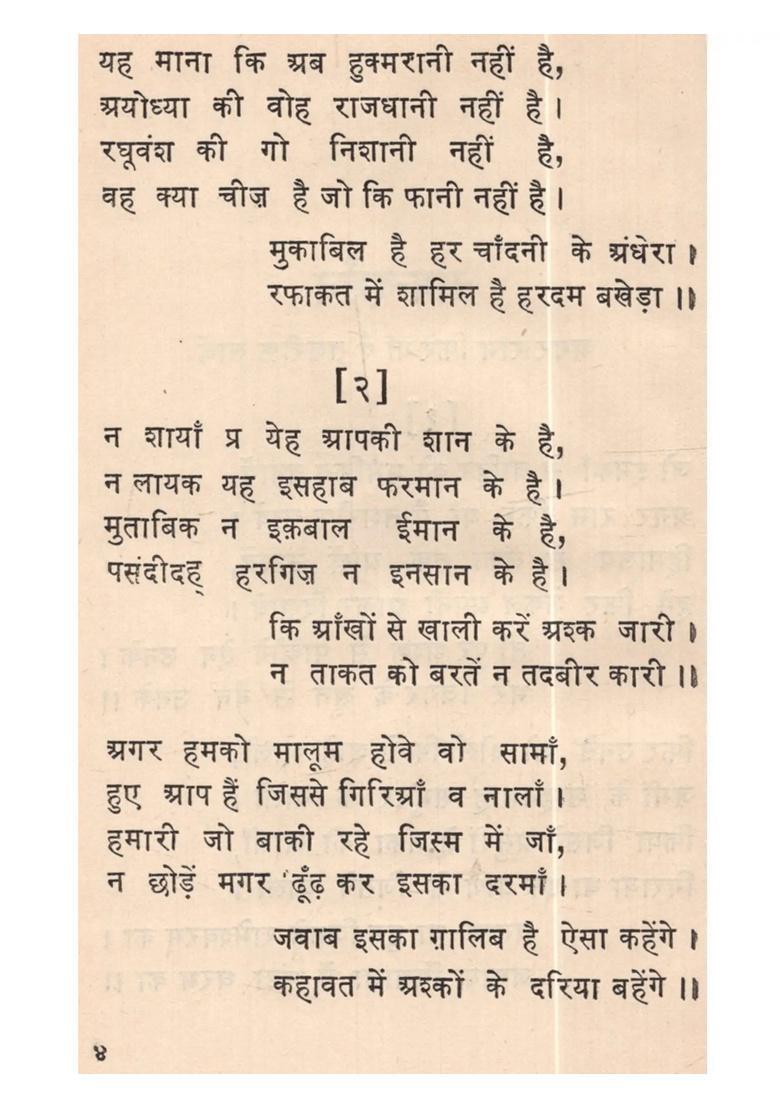 यह माना कि अब हुक्मरानी नहीं है,
अयोध्या की वोह राजधानी नहीं है।
रघूवंश की गो निशानी नहीं है,
वह क्या चीज़ है जो कि फानी नहीं है।
मुकाबिल है हर चाँदनी के अंधेरा।
रफाकत में शामिल है हरदम बखेड़ा॥
[२]
न शायाँ प्र येह आपकी शान के है,
न लायक यह इसहाब फरमान के है।
मुताबिक न इक़बाल ईमान के है,
पसंदीदह् हरगिज़ न इनसान के है।
कि आँखों से खाली करें अश्क जारी।
न ताकत को बरतें न तदबीर कारी॥
अगर हमको मालूम होवे वो सामाँ,
हुए आप हैं जिससे गिरिआँ व नालाँ।
हमारी जो बाकी रहे जिस्म में जाँ,
न छोड़ें मगर ढूँढ़ कर इसका दरमाँ।
जवाब इसका ग़ालिब है ऐसा कहेंगे।
कहावत में अश्कों के दरिया बहेंगे॥
४